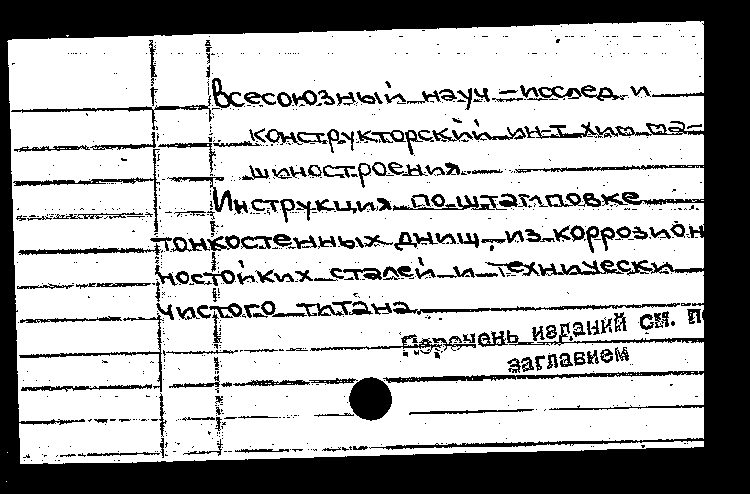 Всесоюзный науч-исслед и
конструкторский ин-т хим ма-
шиностроения
Инструкция по штамповке
тонкостенных днищ из коррозион
ностойких сталей и технически
чистого титана
Перечень изданий см. по
заглавием